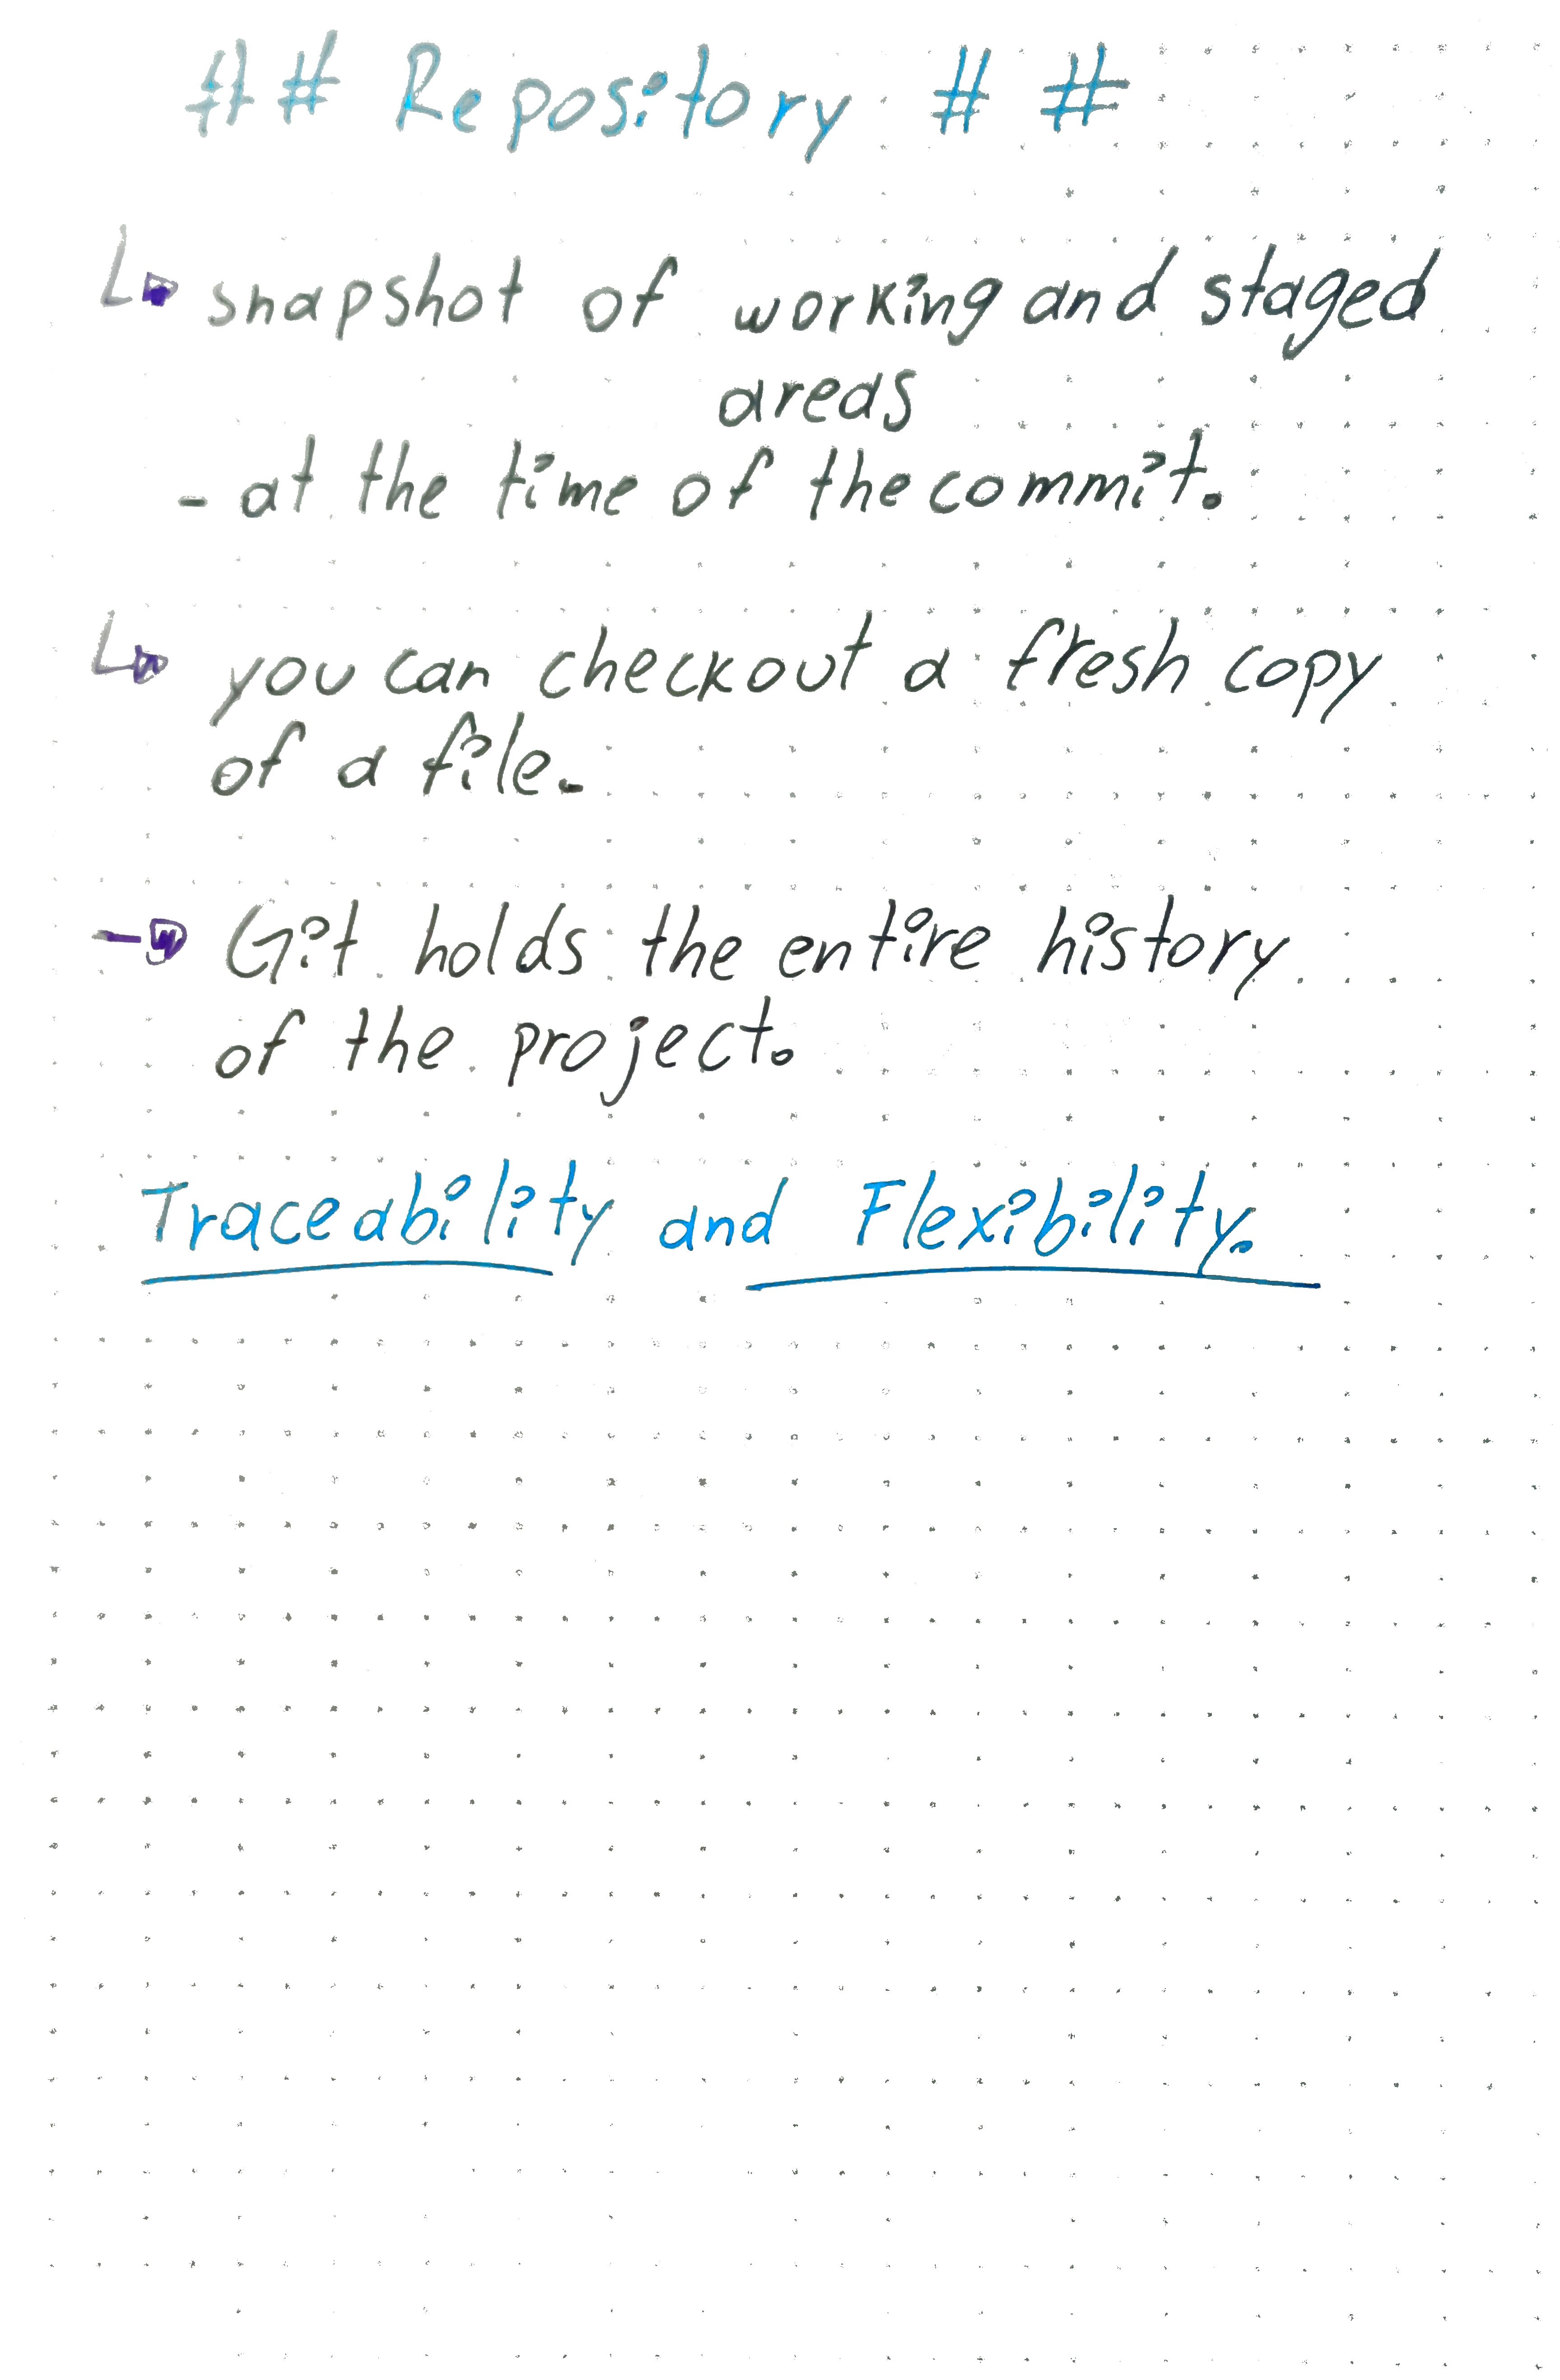 ## Repository ##
snapshot of working and staged
areas
- at the time of the commit.
you can checkout a fresh copy
of a file.
Git holds the entire history
of the project.
Traceability and Flexibility.